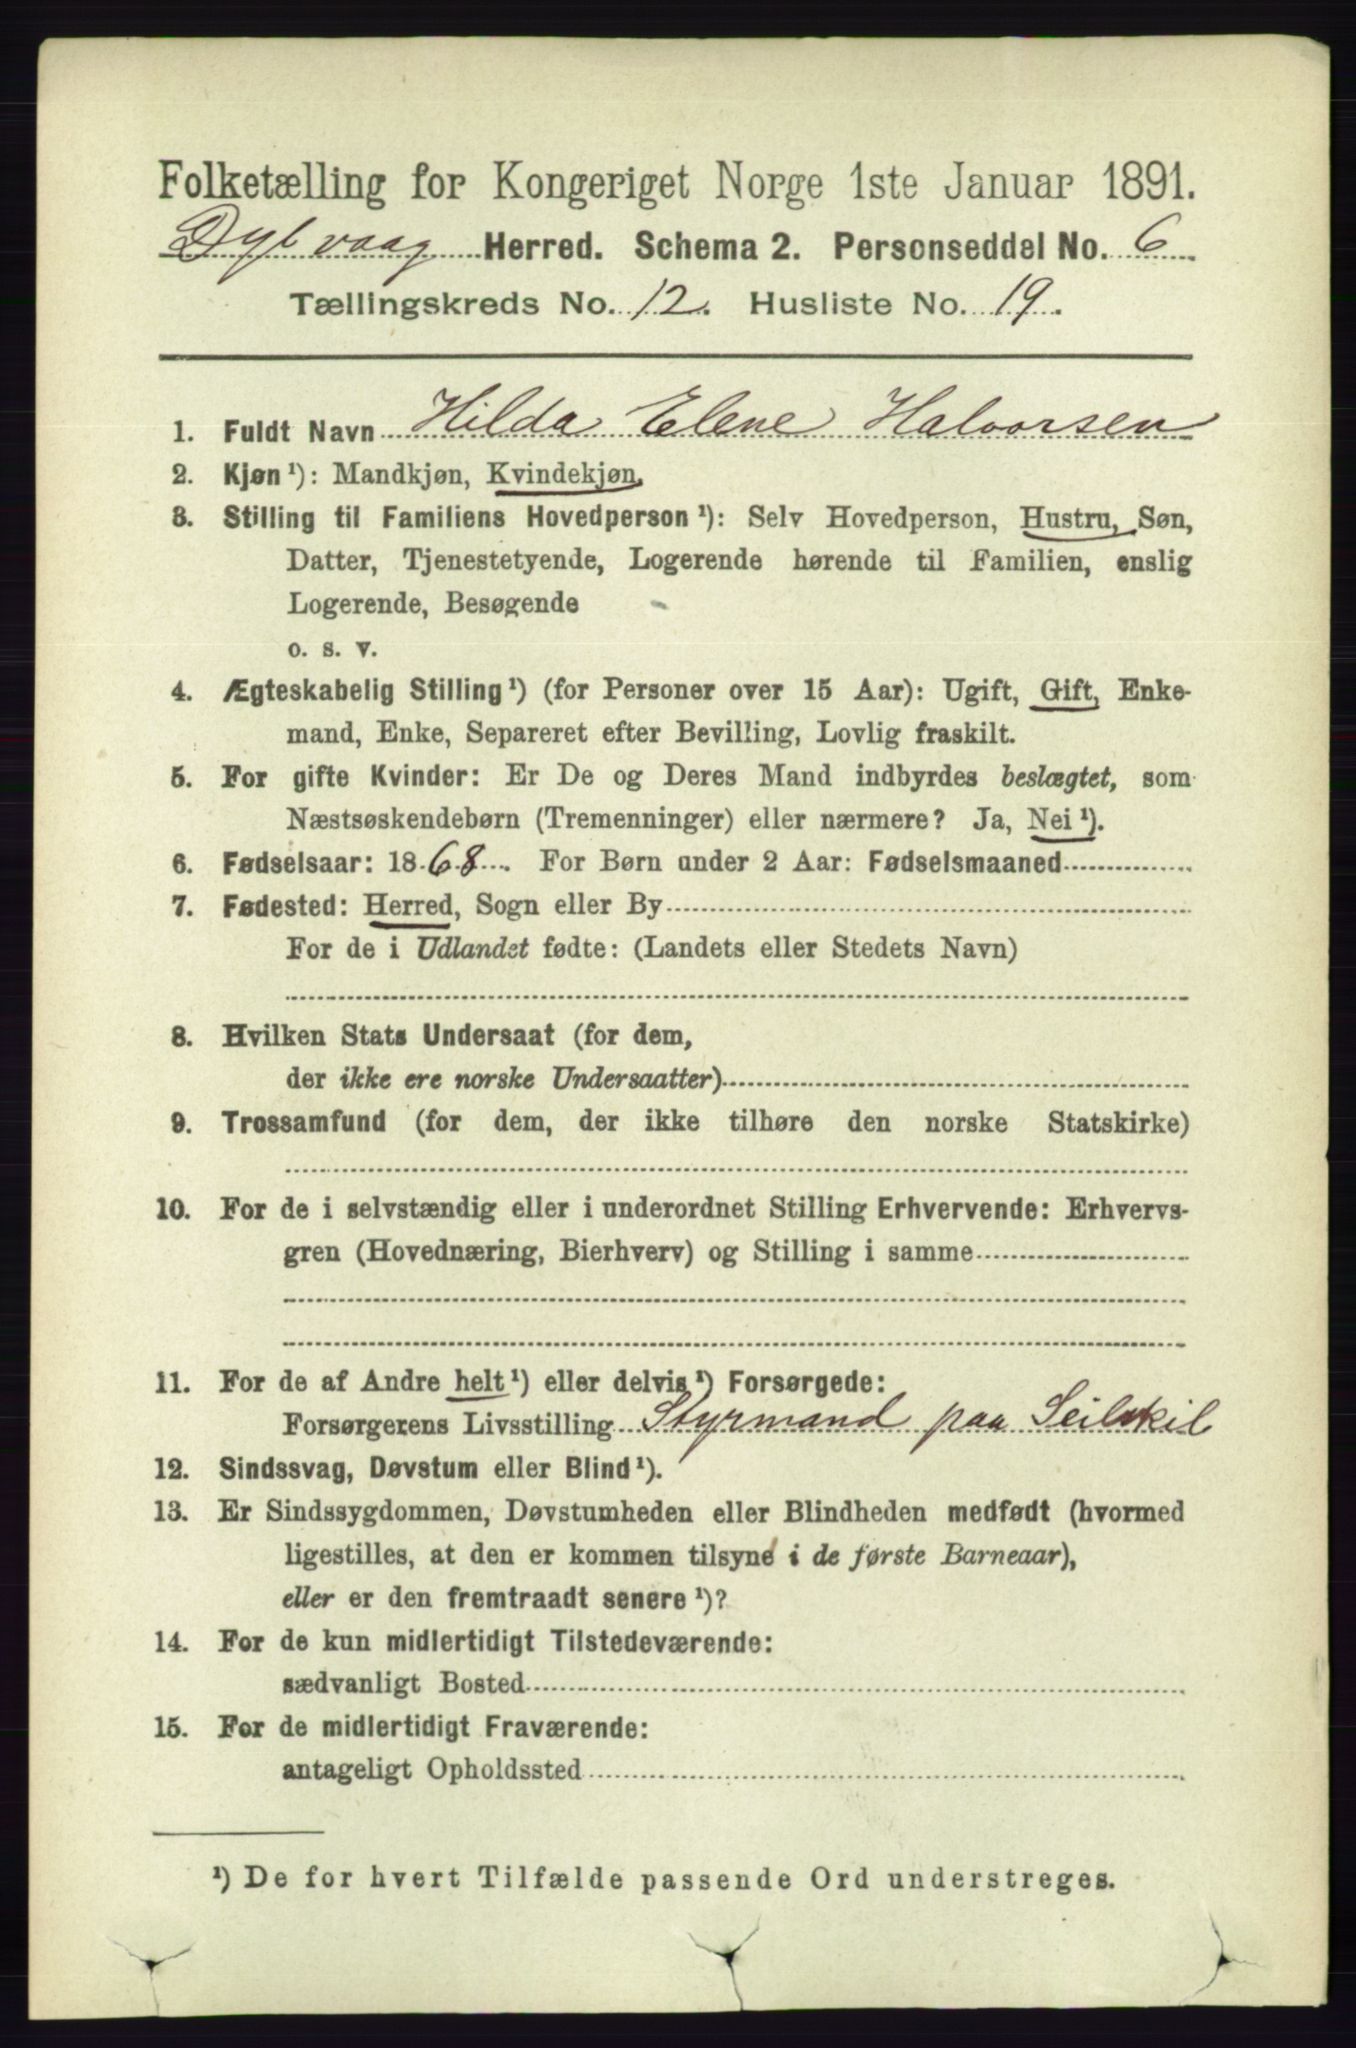 Folketælling for Kongeriget Norge 1ste Januar 1891.
Dybvaag Herred. Schema 2. Personseddel No. 6
Tællingskreds No. 12. Husliste No. 19.
1. Fuldt Navn Hilda Elene Halvorsen
2. Kjøn¹): Mandkjøn, Kvindekjøn,
3. Stilling til Familiens Hovedperson¹): Selv Hovedperson, Hustru, Søn,
Datter, Tjenestetyende, Logerende hørende til Familien, enslig
Logerende, Besøgende
o. s. v.
4. Ægteskabelig Stilling¹) (for Personer over 15 Aar): Ugift, Gift, Enke-
mand, Enke, Separeret efter Bevilling, Lovlig fraskilt.
5. For gifte Kvinder: Er De og Deres Mand indbyrdes beslægtet, som
Næstsøskendebørn (Tremenninger) eller nærmere? Ja, Nei¹).
6. Fødselsaar: 1868. For Børn under 2 Aar: Fødselsmaaned
7. Fødested: Herred, Sogn eller By
For de i Udlandet fødte: (Landets eller Stedets Navn)
8. Hvilken Stats Undersaat (for dem,
der ikke ere norske Undersaatter)
9. Trossamfund (for dem, der ikke tilhøre den norske Statskirke)
10. For de i selvstændig eller i underordnet Stilling Erhvervende: Erhvervs-
gren (Hovednæring, Bierhverv) og Stilling i samme
11. For de af Andre helt¹) eller delvis¹) Forsørgede:
Forsørgerens Livsstilling Styrmand paa Seilskib
12. Sindssvag, Døvstum eller Blind¹).
13. Er Sindssygdommen, Døvstumheden eller Blindheden medfødt (hvormed
ligestilles, at den er kommen tilsyne i de første Barneaar),
eller er den fremtraadt senere¹)?
14. For de kun midlertidigt Tilstedeværende:
sædvanligt Bosted
15. For de midlertidigt Fraværende:
antageligt Opholdssted
¹) De for hvert Tilfælde passende Ord understreges.